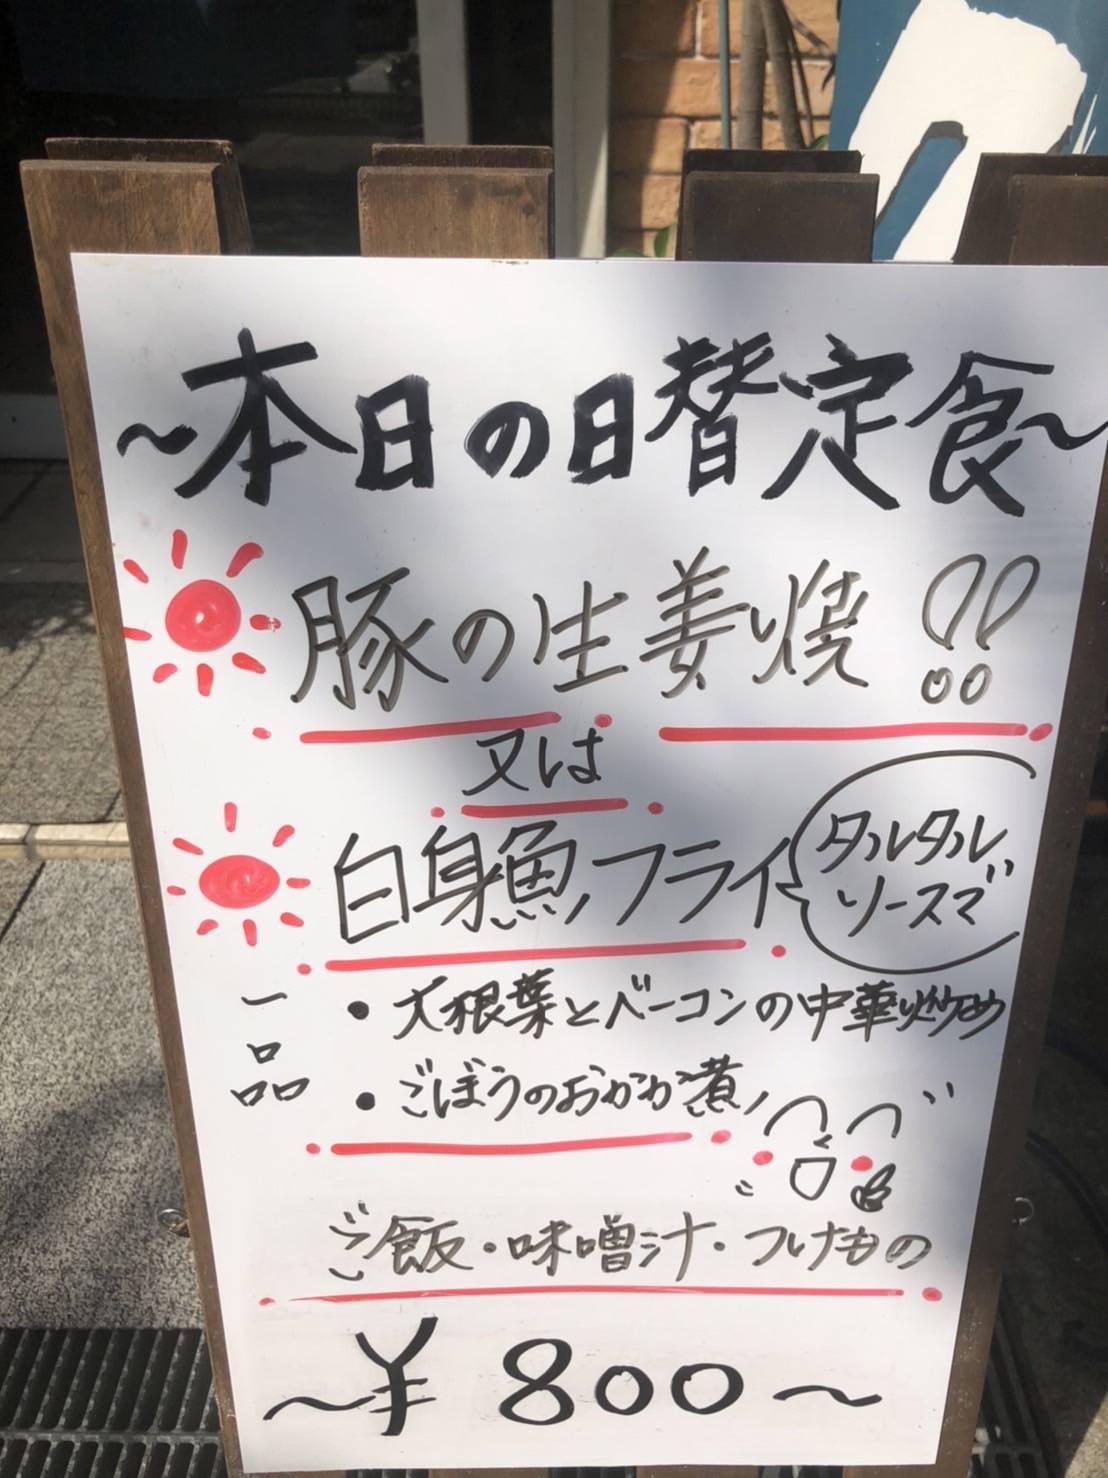 〜本日の日替定食〜
豚の生姜焼!!
又は
白身魚フライ
タルタル
ソースで
一品
・大根葉とベーコンの中華炒め
・ごぼうのおかか煮
ご飯・味噌汁・つけもの
〜¥800〜